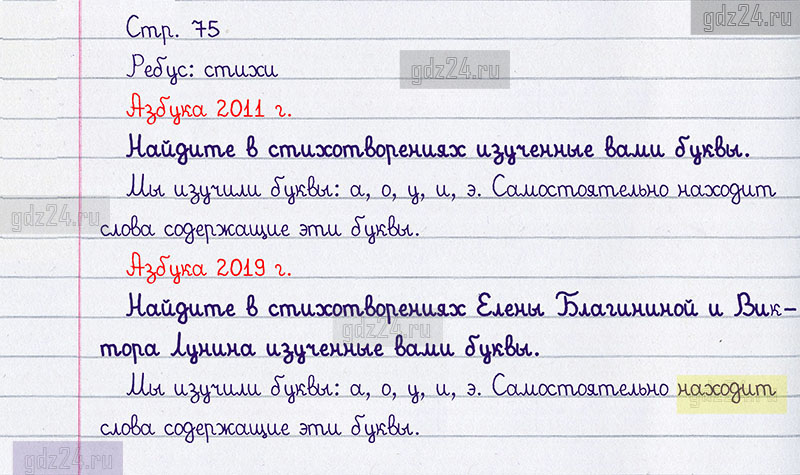 gdz24.ru
Стр. 75
Ребус: стихи
gdz24.ru
Азбука 2011 г.
Найдите в стихотворениях изученные вами буквы.
Мы изучили буквы: а, о, у, и, э. Самостоятельно находит
gdz24.ru
слова содержащие эти буквы.
Азбука 2019 г.
Найдите в стихотворениях Елены Благининой и Вик-
gdz24.ru
тора Лунина изученные вами буквы.
Мы изучили буквы: а, о, у, и, э. Самостоятельно находит
gdz24.ru
слова содержащие эти буквы.
gdz24.ru